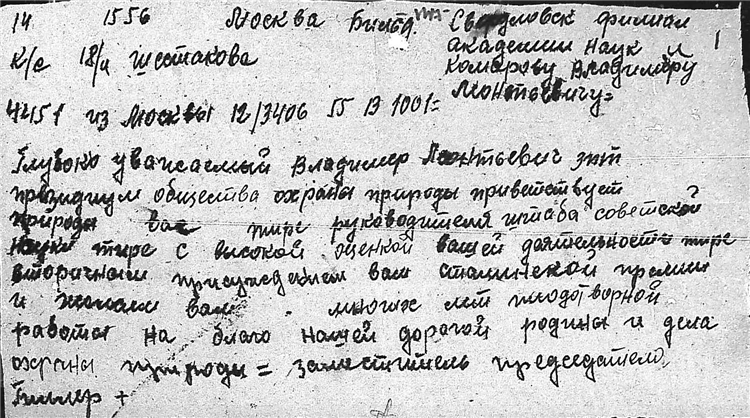 14 1556 Москва Бильд. Свердловск филиал
академии наук
К/с 18/4 Шестакова Комарову Владимеру
Леонтьевичу=
4451 из Москвы 12/3406 55 13 1001=
Глубоко уважаемый Владимер Леонтьевич зпт
президиум общества охраны природы приветствует
природы вас тире руководителя штаба советской
науки тире с высокой оценкой вашей деятельности тире
вторичным присуждением вам сталинской премии
и желаем вам многих лет плодотворной
работы на благо нашей дорогой родины и дела
охраны природы = заместитель председателя
Гиллер +